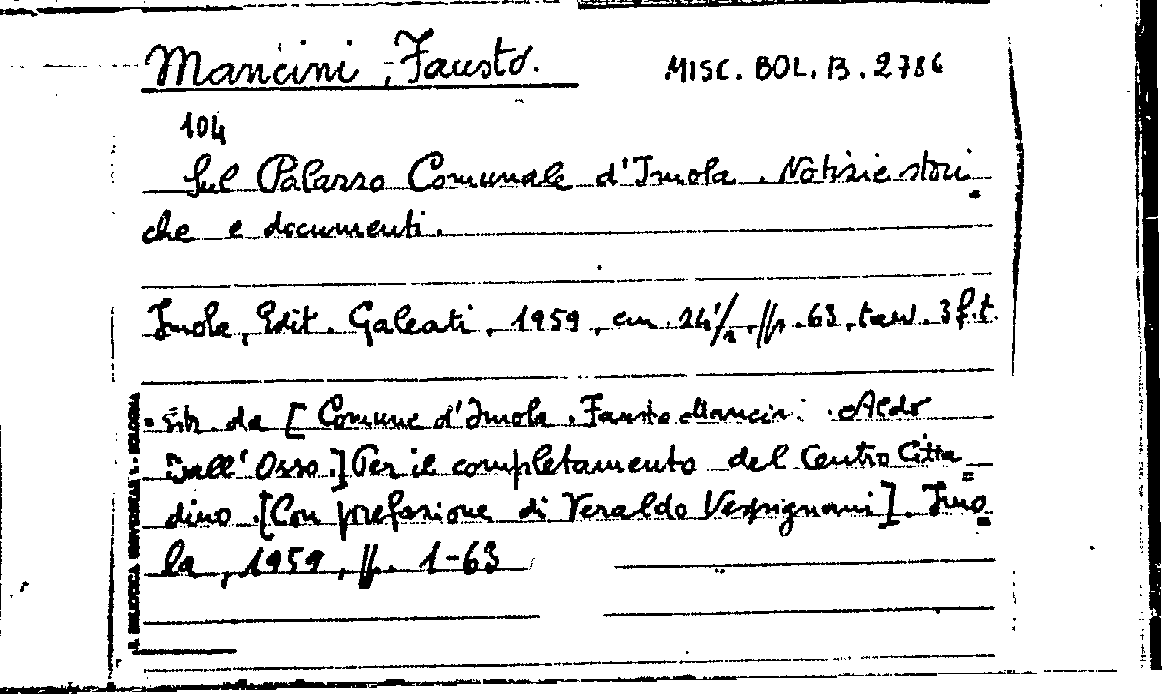 Mancini, Fausto.
MISC. BOL. B. 2786
104
Sul Palazzo Comunale d'Imola. Notizie stori-
che e documenti.
Imola, Edit. Galeati, 1959, cm. 24 1/2, pp. 63, tav. 3 f.t.
Estr. da [Comune d'Imola. Fausto Mancini. Aldo
Dall'Osso.] Per il completamento del Centro Citta=
dino. [Con prefazione di Veraldo Vespignani]. Imo=
la, 1959, pp. 1-63
BIBLIOTECA UNIVERSITARIA - BOLOGNA